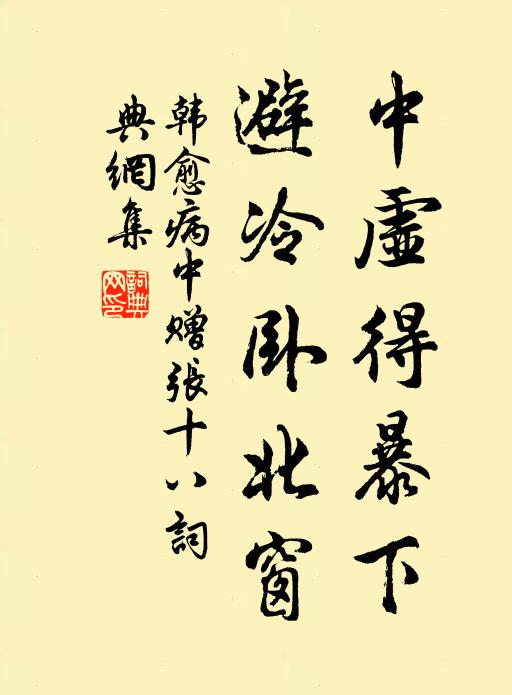 中虛得暴下
避冷卧北窗
韩愈病中赠張十八詞
典網集
詞典网印